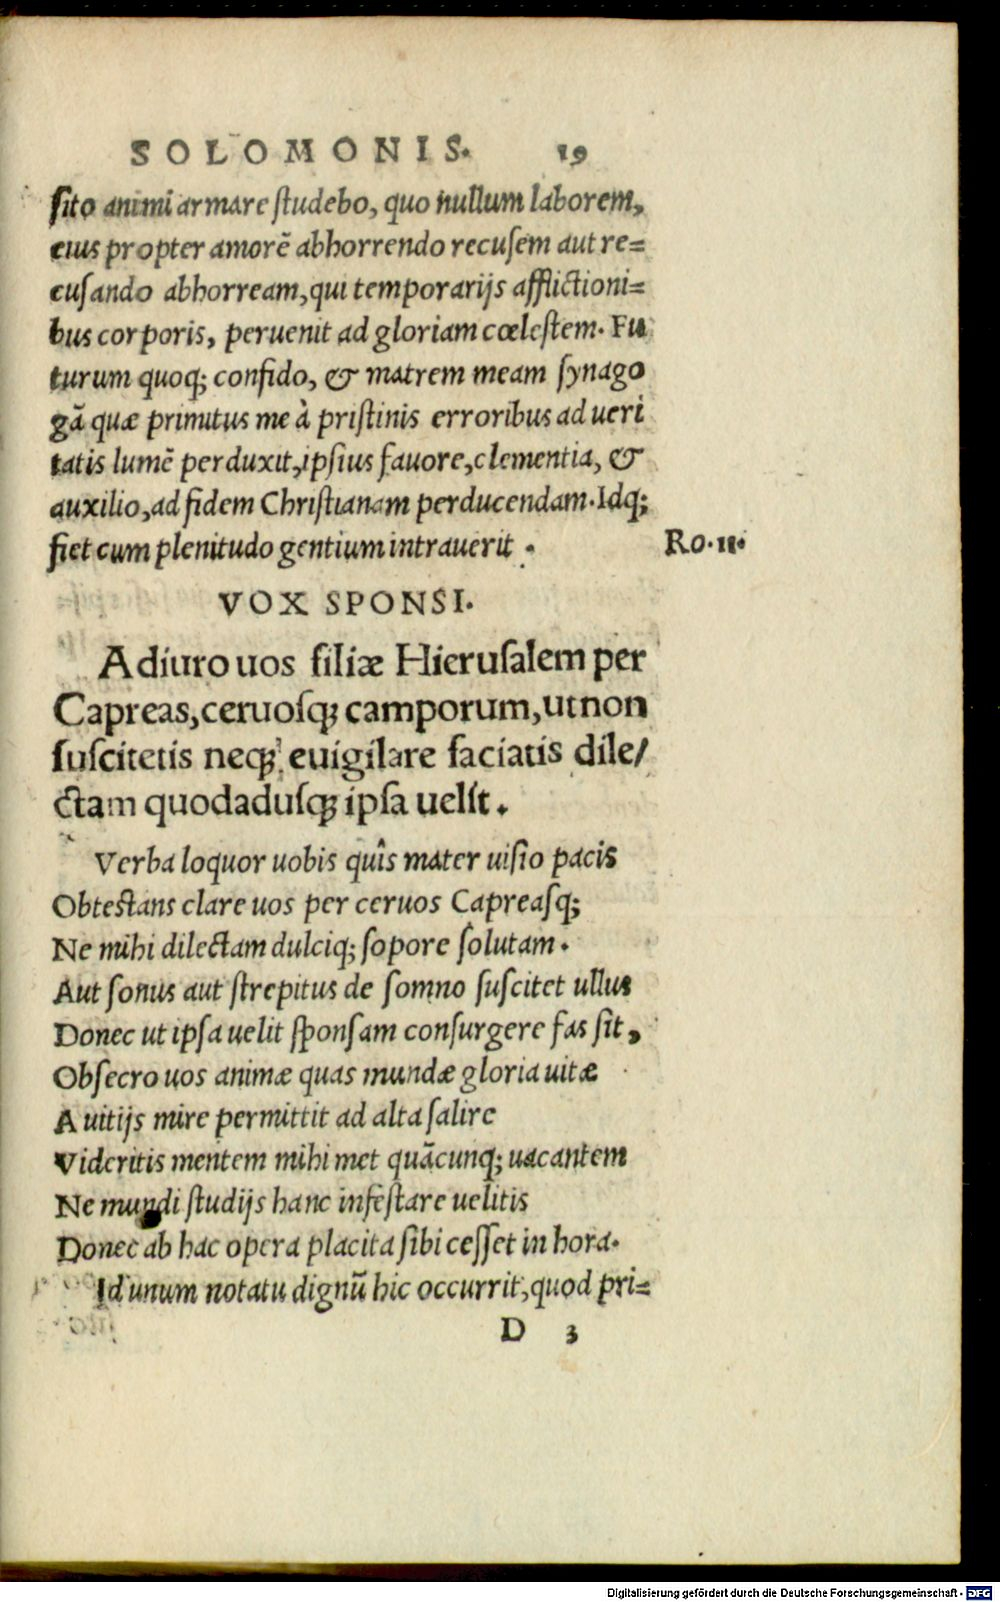 SOLOMONIS. 19
ſito animi armare ſtudebo, quo nullum laborem,
eius propter amorē abhorrendo recuſem aut re=
cuſando abhorream, qui temporarijs afflictioni=
bus corporis, peruenit ad gloriam cœleſtem. Fu
turum quoq; confido, & matrem meam ſynago
gā quæ primitus me à priſtinis erroribus ad ueri
tatis lumē perduxit, ipſius fauore, clementia, &
auxilio, ad fidem Chriſtianam perducendam. Idq;
fiet cum plenitudo gentium intrauerit . Ro. 11.
VOX SPONSI.
Adiuro uos filiæ Hieruſalem per
Capreas, ceruoſq; camporum, ut non
ſuſcitetis neq; euigilare faciatis dile/
ctam quodaduſq; ipſa uelit.
Verba loquor uobis quîs mater uiſio pacis
Obteſtans clare uos per ceruos Capreaſq;
Ne mihi dilectam dulciq; ſopore ſolutam.
Aut ſonus aut ſtrepitus de ſomno ſuſcitet ullus
Donec ut ipſa uelit ſponſam conſurgere fas ſit,
Obſecro uos animæ quas mundæ gloria uitæ
A uitijs mire permittit ad alta ſalire
Videritis mentem mihi met quācunq; uacantem
Ne mundi ſtudijs hanc infeſtare uelitis
Donec ab hac opera placita ſibi ceſſet in hora.
Id unum notatu dignū hic occurrit, quod pri=
D 3
Digitalisierung gefördert durch die Deutsche Forschungsgemeinschaft - DFG